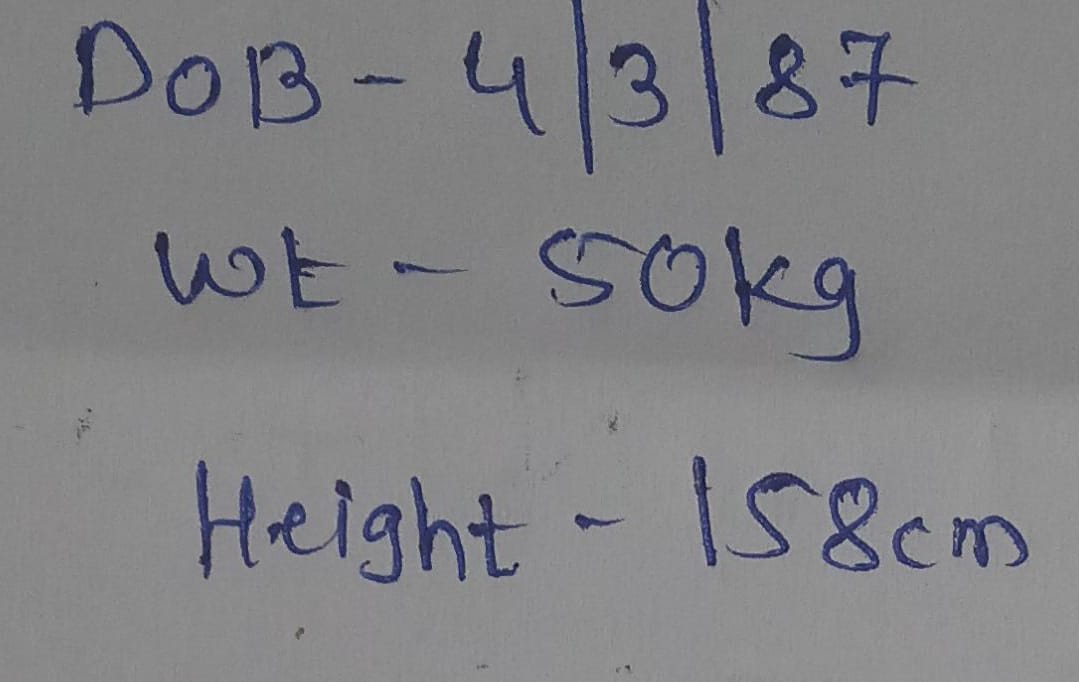 DOB - 4/3/87
Wt - 50kg
Height - 158cm